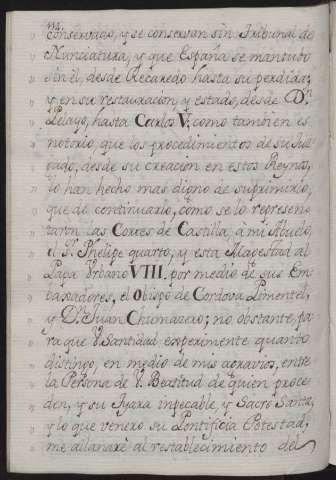 114.
conservado, y se conservan sin Tribunal de
Nunciatura, y que España se mantubo
sin él, desde Recaredo hasta su perdida;
y en su restauracion, y estado, desde Dn.
Pelayo, hasta Carlos V; como tambien es
notorio, que los procedimientos de su Juz
gado, desde su creacion en estos Reynos,
lo han hecho mas digno de suprimirlo,
que de continuarlo, como se lo represen
taron las Cortes de Castilla á mi Abuelo,
el Sr. Phelipe quarto, y esta Magestad al
Papa Urbano VIII, por medio de sus Em
baxadores, el Obispo de Cordova Pimentel,
y Dn. Juan Chumazero; no obstante, pa
ra que V. Santidad experimente quanto
distingo, en medio de mis agravios, entre
la Persona de V. Beatitud de quien proce
den, y su Tyara impecable, y Sacro Santa,
y lo que venero su Pontificia Potestad,
me allanaré al restablecimiento del